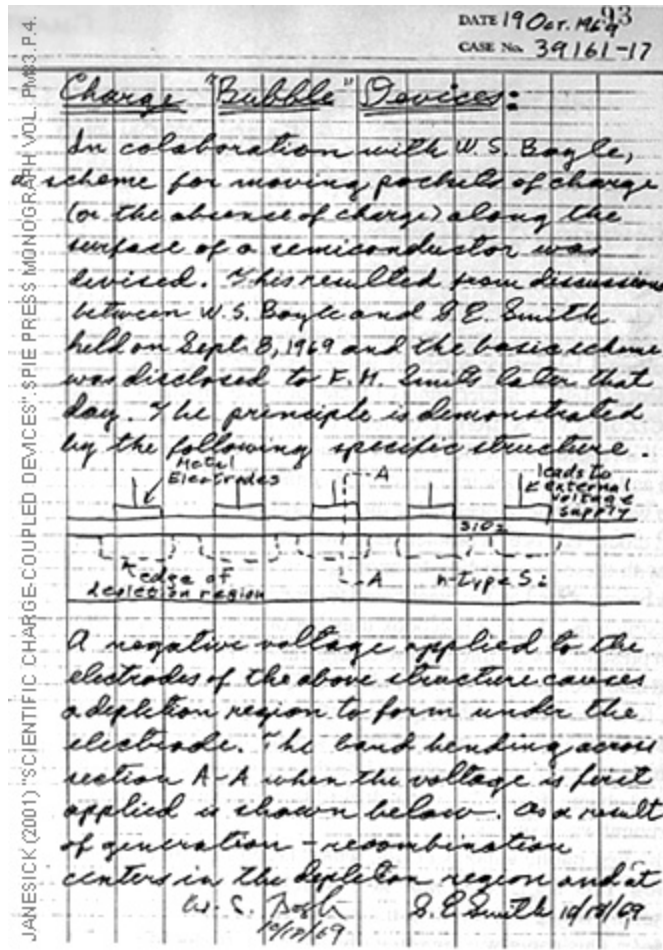 93
DATE 19 Oct. 1969
CASE No. 39161-17
Charge "Bubble" Devices:
In colaboration with W. S. Boyle,
a scheme for moving pockets of charge
(or the absence of charge) along the
surface of a semiconductor was
devised. This resulted from discussions
between W. S. Boyle and G E. Smith
held on Sept. 8, 1969 and the basic scheme
was disclosed to F. M. Smits later that
day. The principle is demonstrated
by the following specific structure.
Metal
Electrodes
A
leads to
external
voltage
supply
SiO2
edge of
depletion region
A
n-type Si
A negative voltage applied to the
electrodes of the above structure causes
a depletion region to form under the
electrode. The band bending across
section A-A when the voltage is first
applied is shown below. As a result
of generation - recombination
centers in the depletion region and at
W. S. Boyle
G. E Smith 10/19/69
JANESICK (2001) "SCIENTIFIC CHARGE-COUPLED DEVICES". SPIE PRESS MONOGRAPH VOL. PM83. P.4.